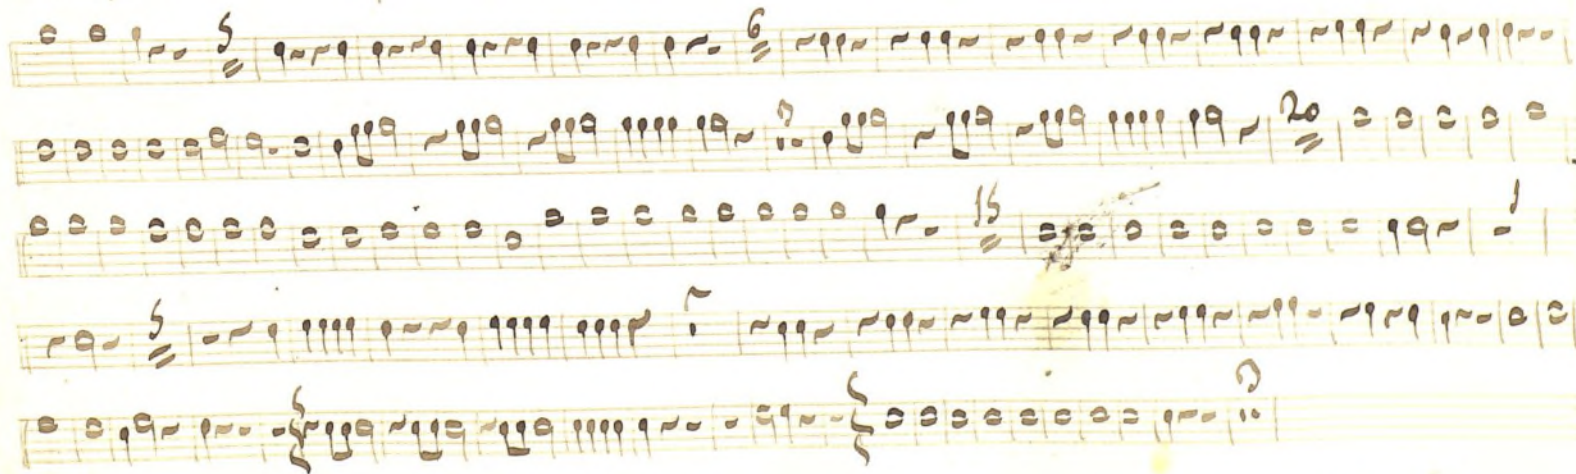 5 6
20
15 1
5